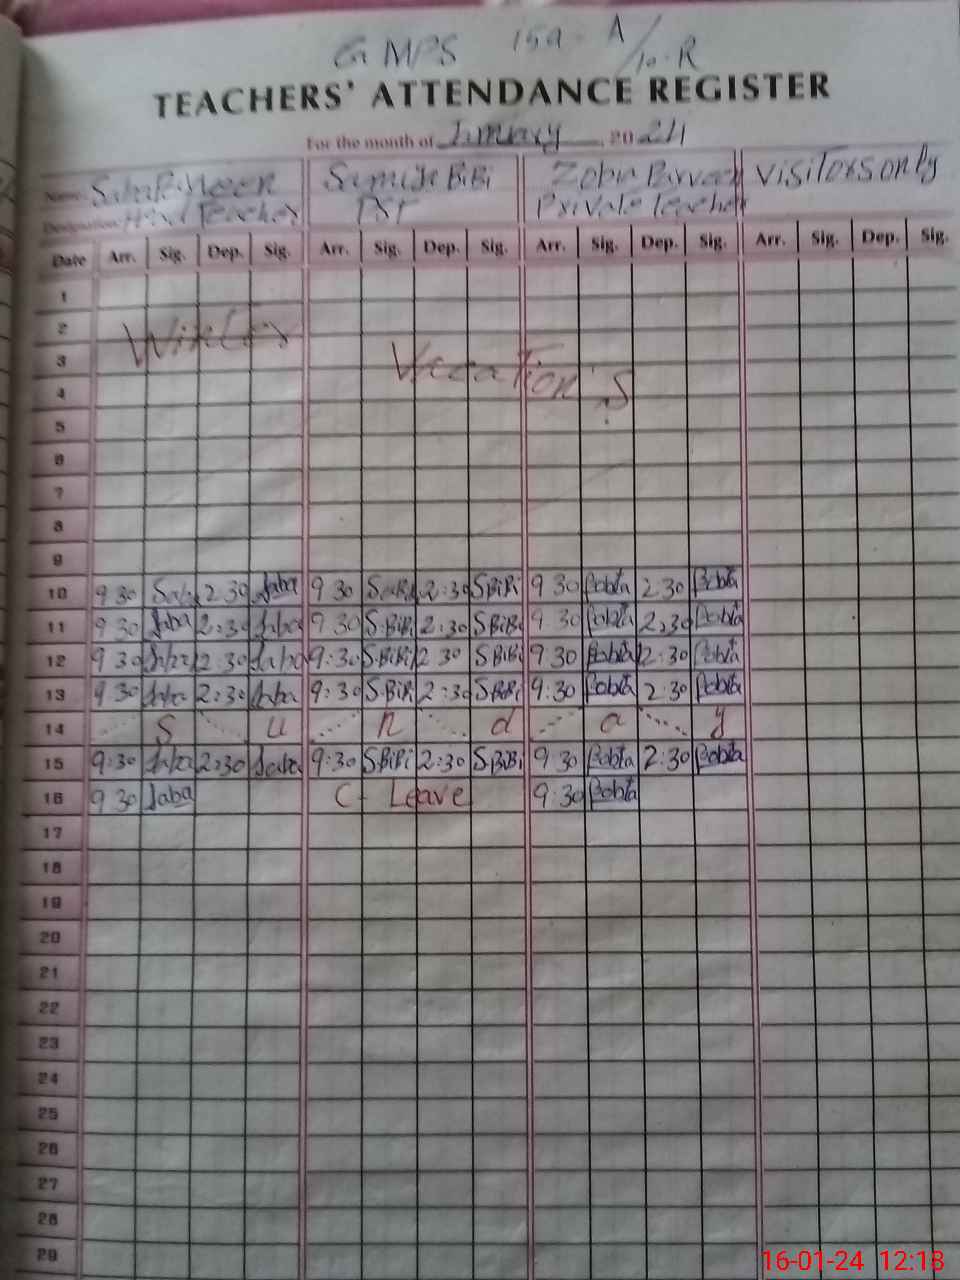 GMPS 159-A/10-R
TEACHERS' ATTENDANCE REGISTER
For the month of January, 2024
Name Saba BiBi Visitors only
Designation Head Teacher PST Private teacher
Date Arr. Sig. Dep. Sig. Arr. Sig. Dep. Sig. Arr. Sig. Dep. Sig. Arr. Sig. Dep. Sig.
1
2 Winter
3 Vacation's
4
5
6
7
8
9
10 9 30 Saba 2:30 Saba 9 30 S.BiBi 2:30 SBiBi 9 30 2:30
11 9 30 Saba 2:30 Saba 9 30 S.BiBi 2:30 SBiBi 9.30 2:30
12 9 30 Saba 2:30 Saba 9:30 S.BiBi 2 30 SBiBi 9:30 2:30
13 9 30 Saba 2:30 Saba 9:30 S.BiBi 2:30 SBiBi 9:30 2:30
14 S u n d a y
15 9:30 Saba 2:30 Saba 9:30 SBiBi 2:30 SBiBi 9 30 2:30
16 9 30 Saba C- Leave 9:30
17
18
19
20
21
22
23
24
25
26
27
28
29
16-01-24 12:18